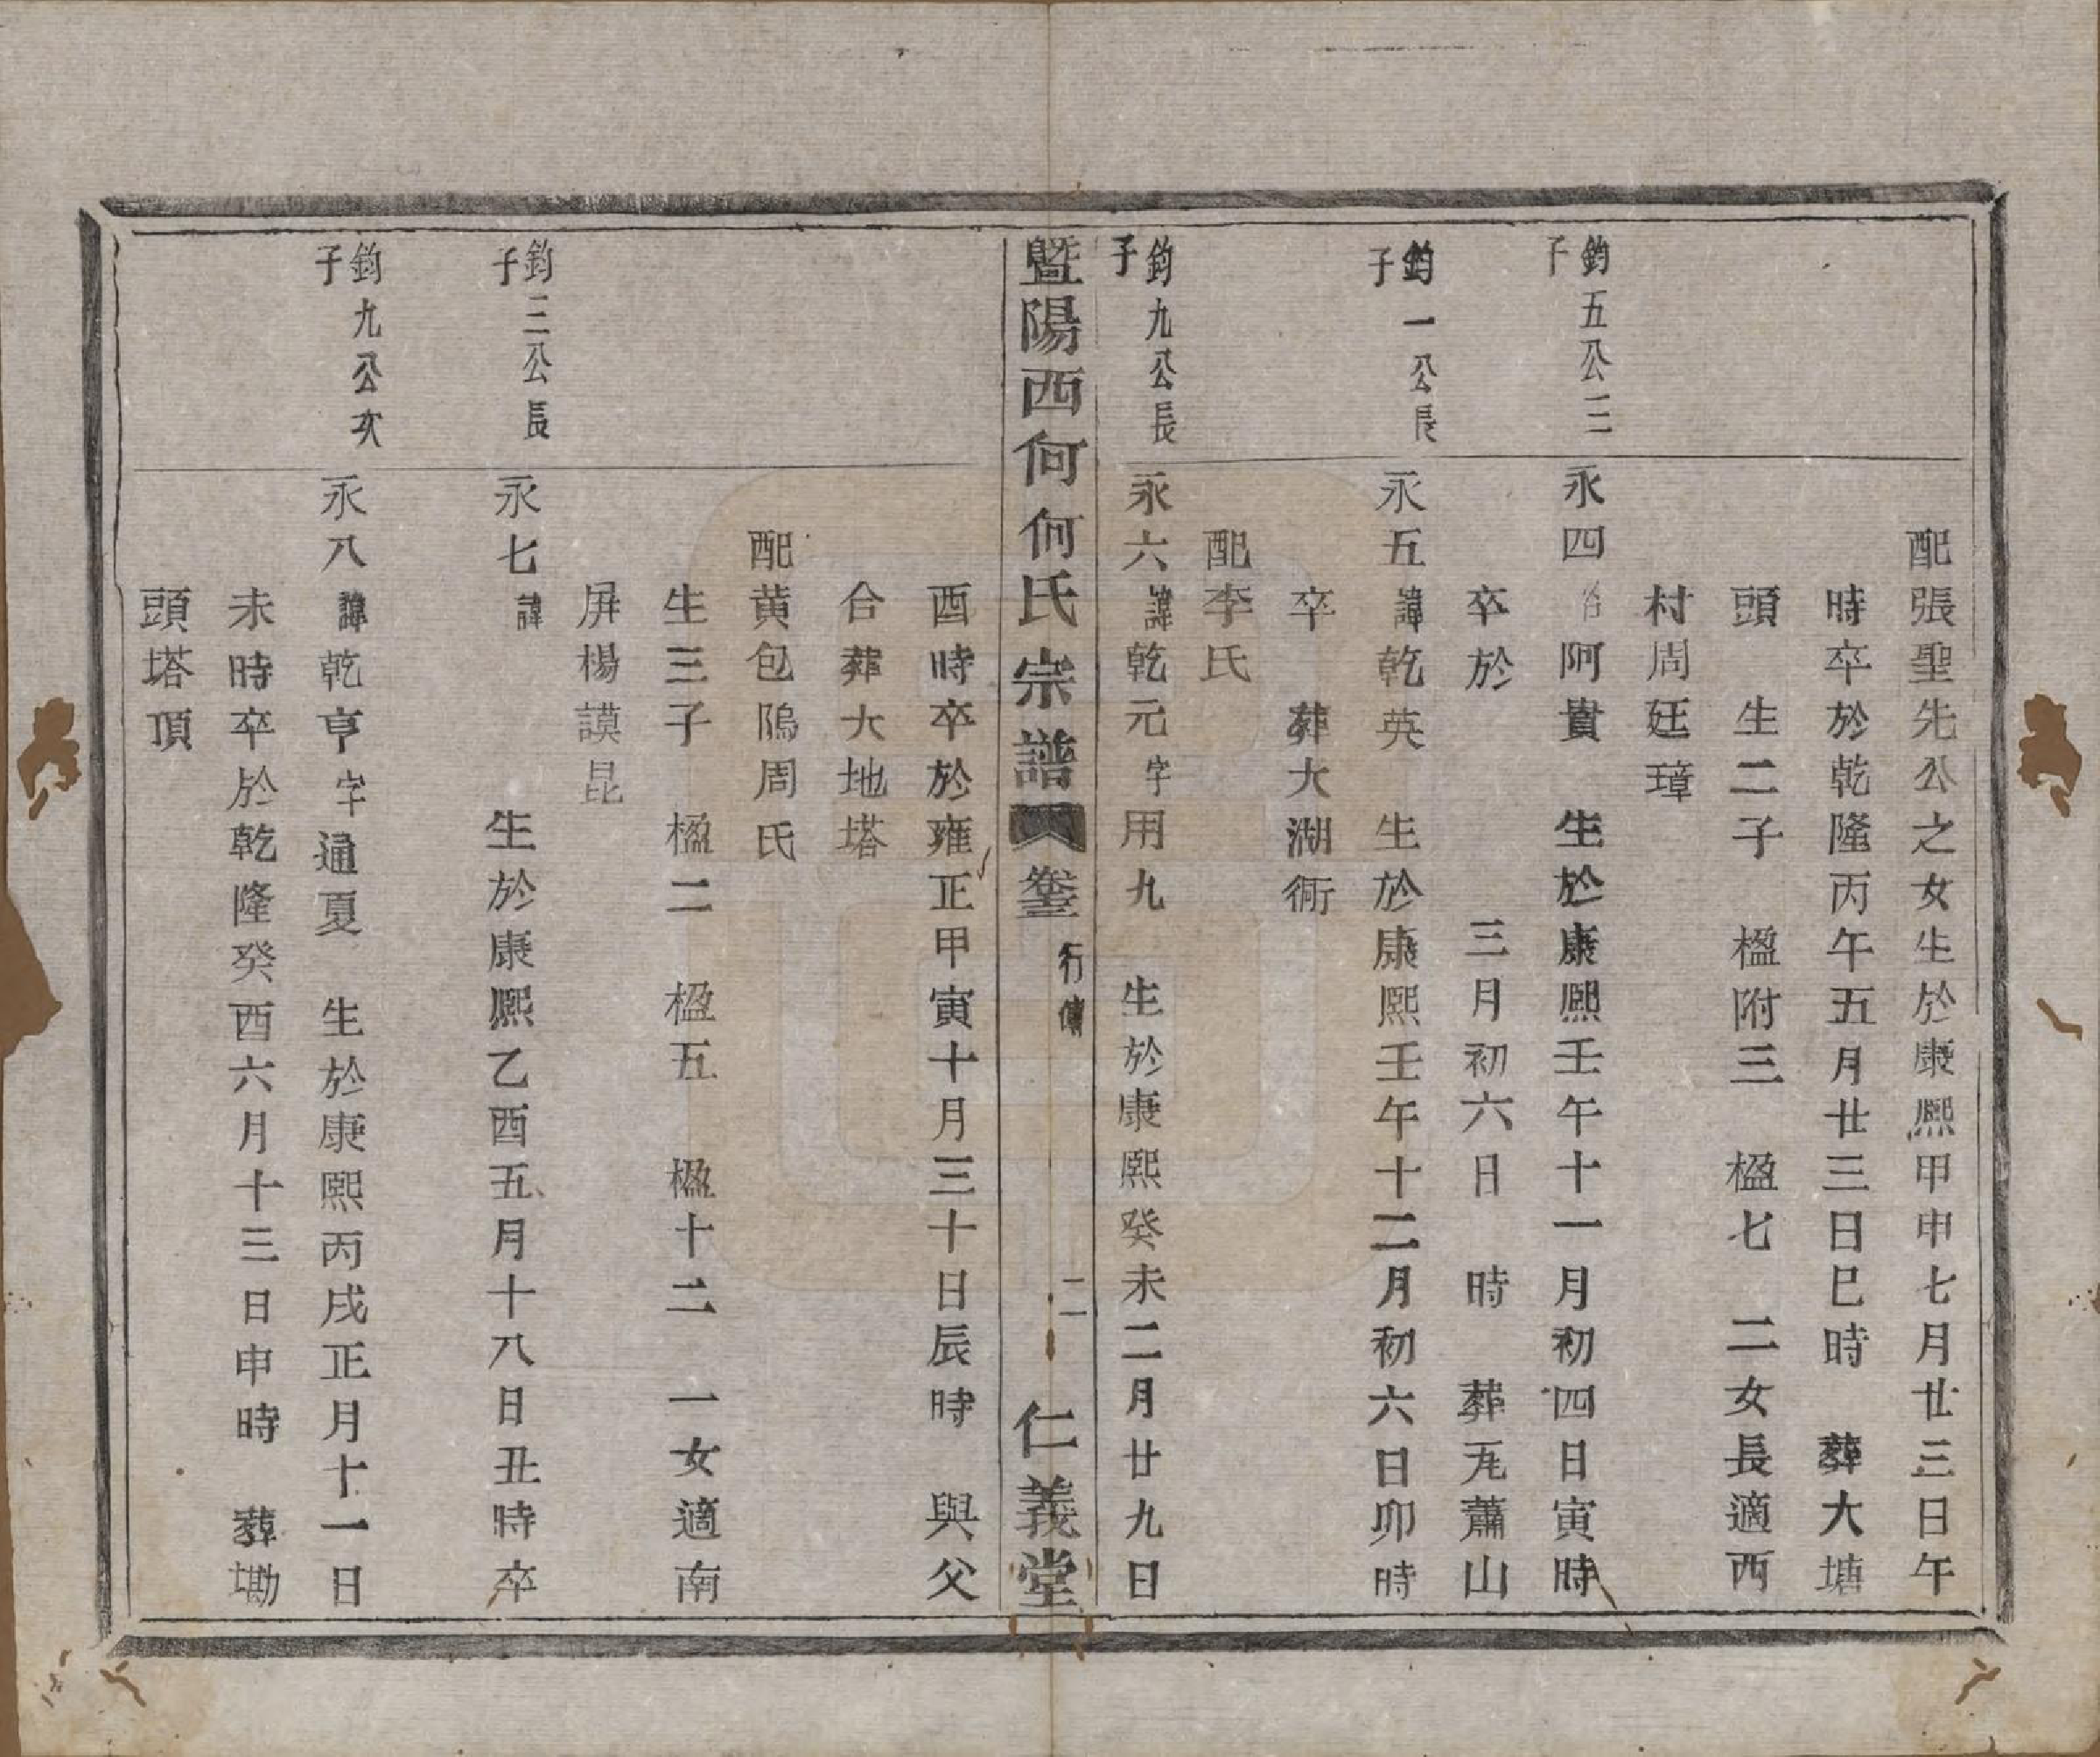 配張聖先公之女生於康熙甲申七月廿三日午
時卒於乾隆丙午五月廿三日巳時　葬大塘
頭　生二子　楹附三　楹七　二女長適西
村周廷璋
鈞五公三子
永四　阿貴　生於康熙壬午十一月初四日寅時
卒於　三月初六日　時　葬蕭山
鈞一公長子
永五諱乾英　生於康熙壬午十二月初六日卯時
卒　葬大湖衕
配李氏
鈞九公長子
永六諱乾元字用九　生於康熙癸未二月廿九日
暨陽西何何氏宗譜　卷三　行傳　二　仁義堂
酉時卒於雍正甲寅十月三十日辰時　與父
合葬大地塔
配黄包隖周氏
生三子　楹二　楹五　楹十二　一女適南
屏楊謨昆
鈞三公長子
永七諱　生於康熙乙酉五月十八日丑時卒
鈞九公次子
永八諱乾亨字通夏　生於康熙丙戌正月十一日
未時卒於乾隆癸酉六月十三日申時　葬墈
頭塔頂